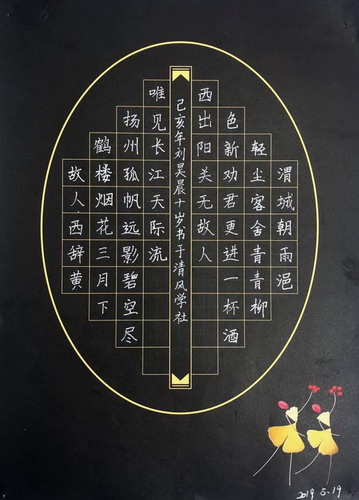 故人西辞黄
鹤楼烟花三月下
扬州孤帆远影碧空尽
唯见长江天际流
渭城朝雨浥
轻尘客舍青青柳
色新劝君更进一杯酒
西出阳关无故人
己亥年刘昊晨十岁书于清风学社
2019 5.19